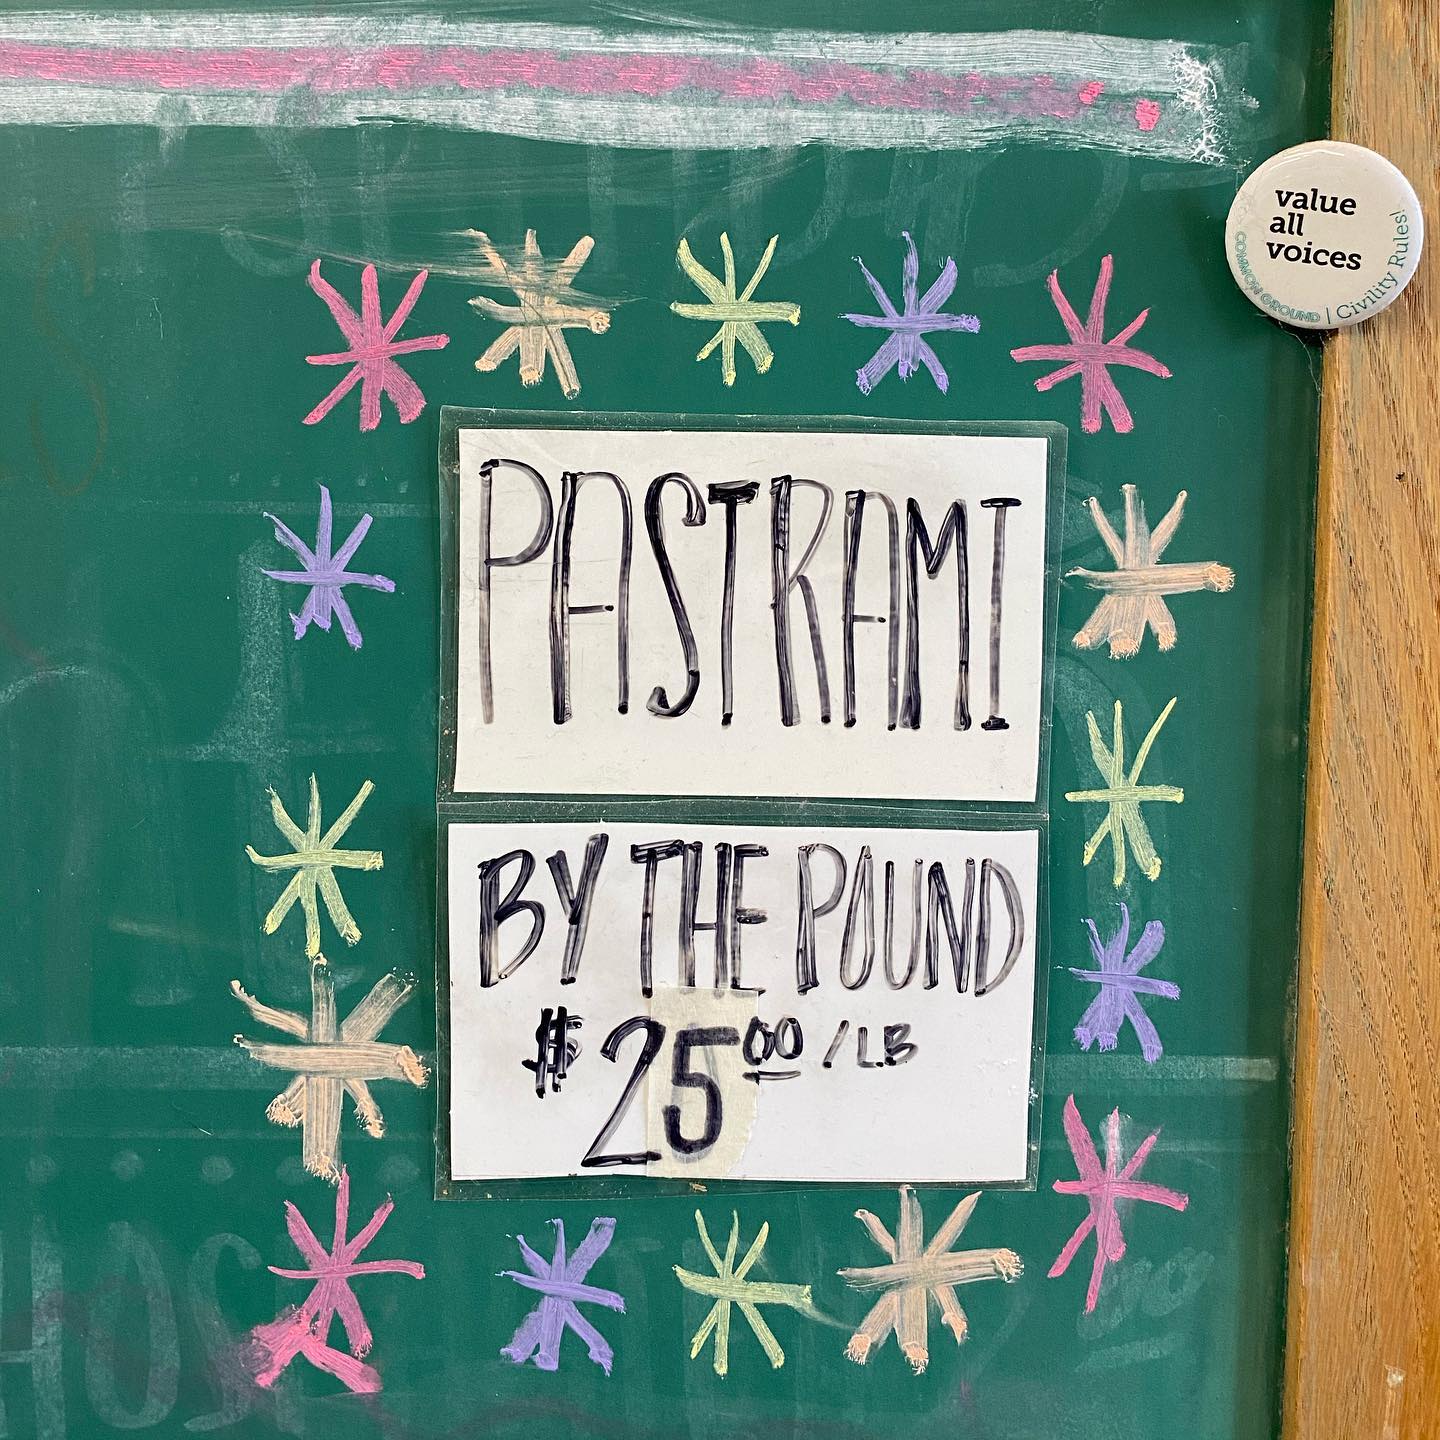 value
all
voices
COMMON GROUND | Civility Rules!
PASTRAMI
BY THE POUND
$ 25 00 / LB